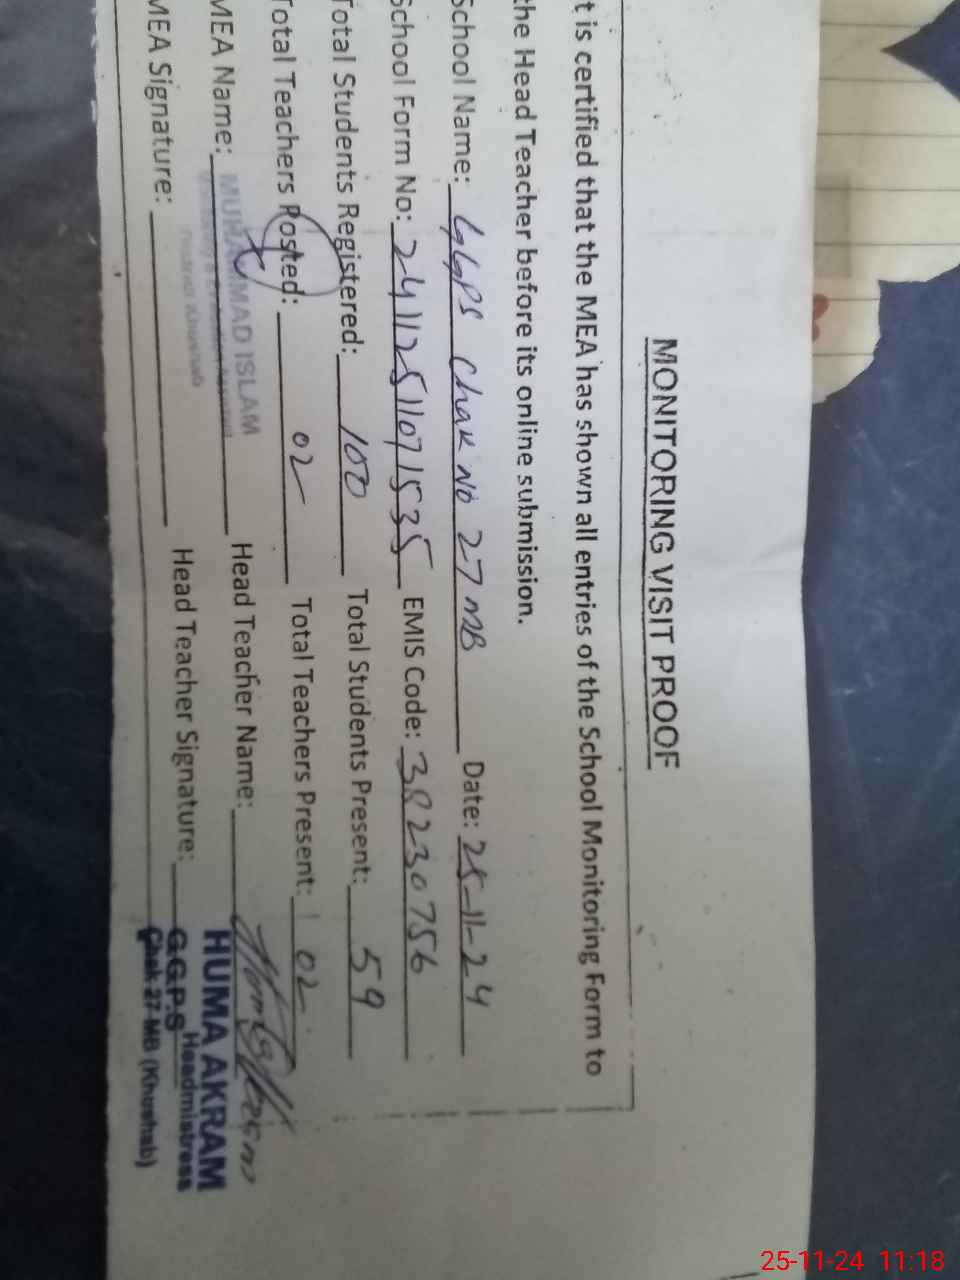 MONITORING VISIT PROOF
t is certified that the MEA has shown all entries of the School Monitoring Form to
the Head Teacher before its online submission.
School Name: GGPS Chak No 27 MB Date: 25-11-24
School Form No: 24112511071535 EMIS Code: 38230756
Total Students Registered: 100 Total Students Present: 59
Total Teachers Posted: 02 Total Teachers Present: 02
MEA Name: MUHAMMAD ISLAM Head Teacher Name:
MEA Signature: Head Teacher Signature:
HUMA AKRAM
Headmistress
G.G.P.S
Chak 27 MB (Khushab)
25-11-24 11:18